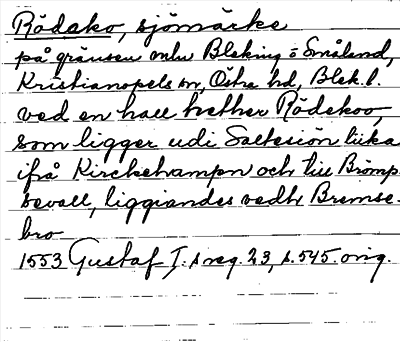 Rödako, sjömärke
på gränsen mlu Bleking o Småland,
Kristianopels sn, Östra hd, Blek. l.
ved en hall hether Rödekoo,
som ligger udi Saltesiön liika
ifrå Kirckehampn och till Brömp-
sevall, liggiandes vedh Bremse-
bro
1553 Gustaf I:s reg. 23, s. 545. orig.